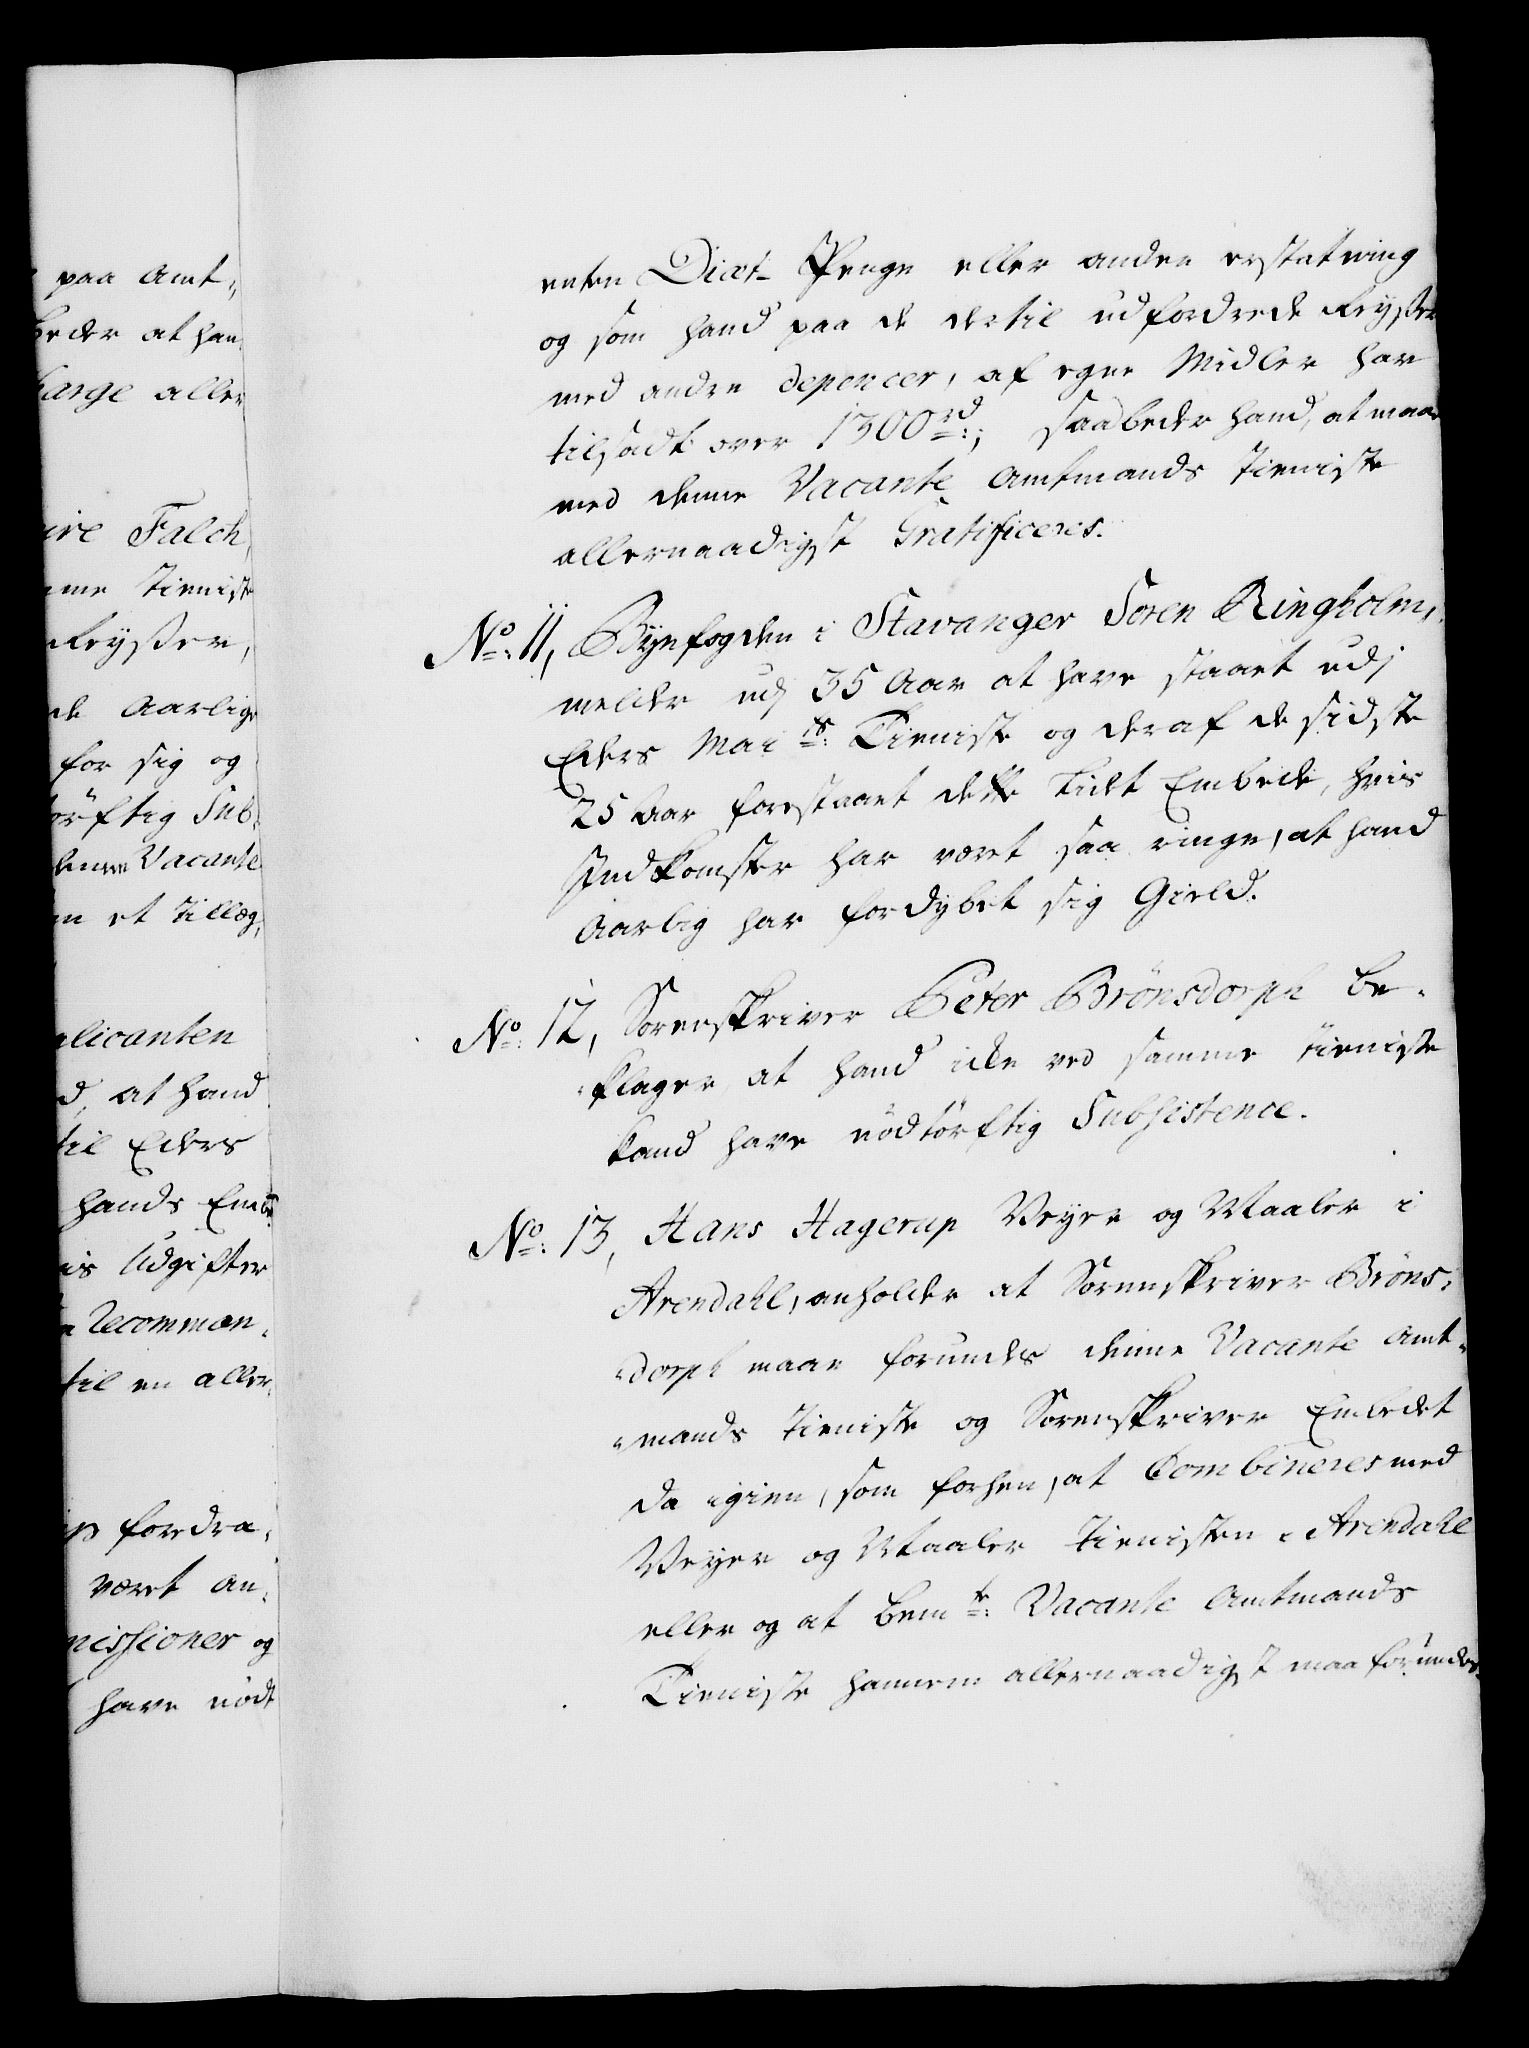 paa Amt„
beder at han
harge aller
ire Falch,
me tieniste
Reyser,
de Aarlige
for sig og
törftig Sub„
denne Vacante
et Tillæg,
plicanten
at hand
til Eders
hands Embe
is Udgifter
Recommen„
til en aller„
fordra„
været an„
missioner og
have nödt
enten Diæt-Penge eller anden erstatning
og som hand paa de dertil udfordrede Reyser
med andre depencer, af egne Midler har
tilsadt over 1300 rd:; saa beder hand, at maae
med denne Vacante Amtmands tieniste
allernaadigst Gratificeres.
No: 11, Byefogden i Stavanger Soren Ringholm,
melder udj 35 Aar at have staaet udj
Eders Maits: Tieniste og deraf de sidste
25 Aar forestaaet dette lidet Embede, hvis
Indkomster har været saa ringe, at hand
Aarlig har fordybet sig Gield.
No: 12, Sorenskriver Peter Brönsdorph be„
„klager, at hand icke ved samme tieniste
kand have nödtörftig Subsistence.
No: 13, Hans Hagerup Veyer og Maaler i
Arendahl, anholder at Sorenskriver Bröns„
„dorph maae forundes denne Vacante Amt„
„mands tieniste og Sorenskriver Embedet
da igien, som forhen, at Combineres med
Veyer og Maaler tienisten i Arendahl
eller og at bemte: Vacante Amtmands
Tieniste hannem allernaadigst maa forundes.